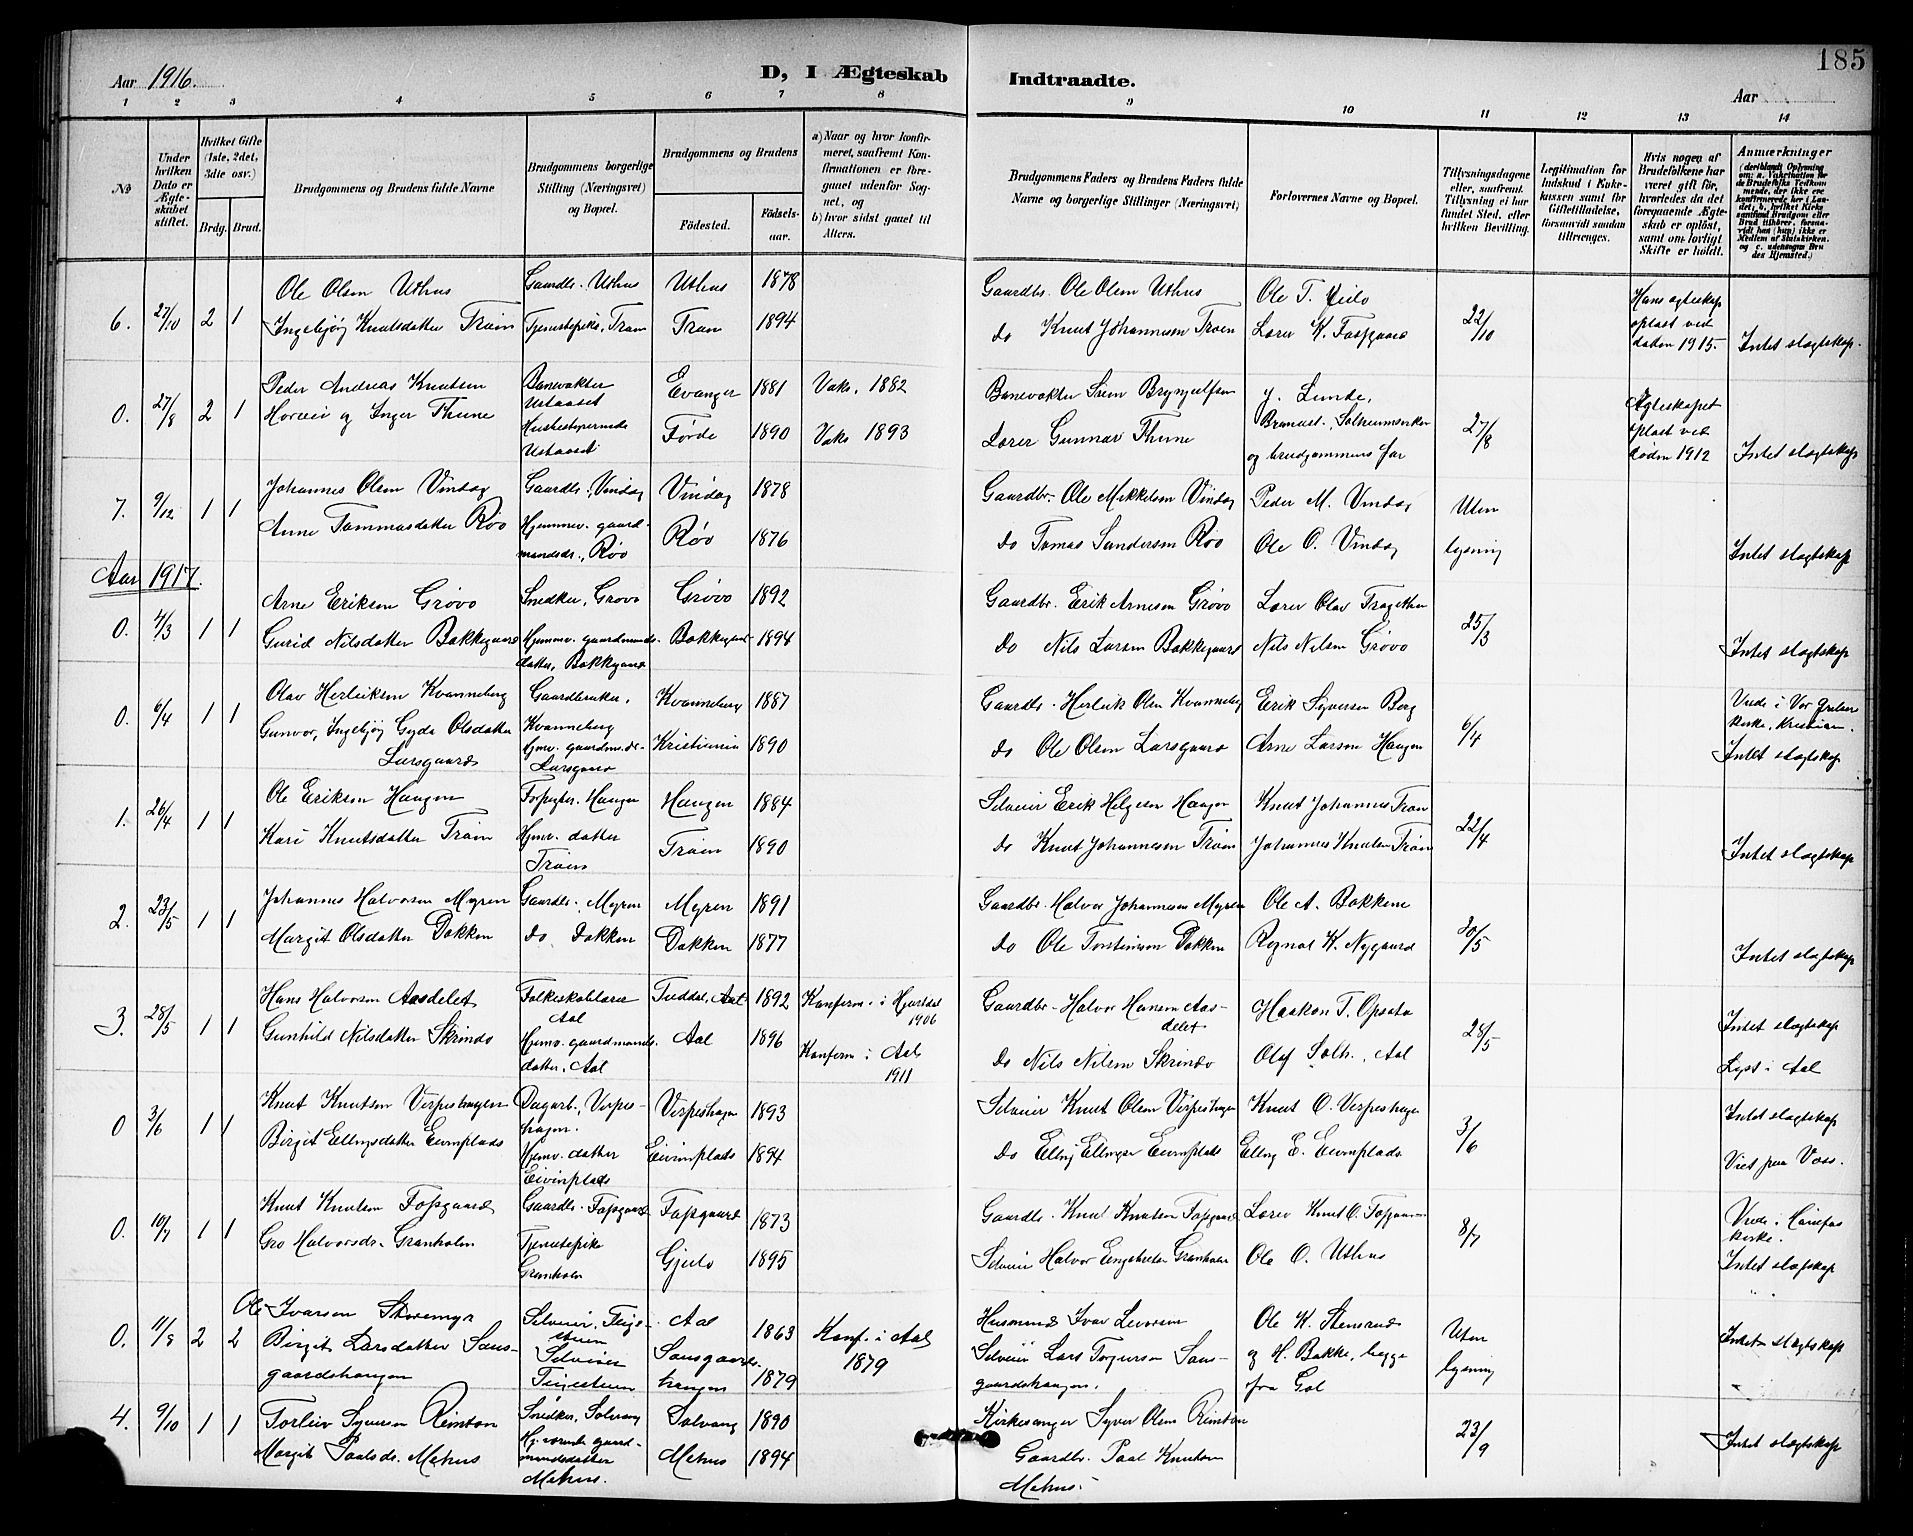 185
Aar 1916.
D, I Ægteskab Indtraadte.
Aar
1 2 3 4 5 6 7 8 9 10 11 12 13 14
No
Under hvilken Dato er Ægteskabet stiftet.
Hvilket Gifte (1ste, 2det, 3die osv.)
Brdg. Brud.
Brudgommens og Brudens fulde Navne
Brudgommens borgerlige Stilling (Næringsvei) og Bopæl.
Brudgommens og Brudens
Födested.
Födselsaar.
a) Naar og hvor konfirmeret, saafremt Konfirmationen er foregaaet udenfor Sognet, og
b) hvor sidst gaaet til Alters.
Brudgommens Faders og Brudens Faders fulde Navne og borgerlige Stillinger (Næringsvei)
Forlovernes Navne og Bopæl.
Tillysningsdagene eller, saafremt Tillysning ei har fundet Sted, efter hvilken Bevilling.
Legitimation for Indskud i Enkekassen samt for Giftetilladelse, forsaavidt saadan tiltrænges.
Hvis nogen af Brudefolkene har været gift før, hvorledes da det foregaaende Ægteskab er opløst, samt om lovligt Skifte er holdt.
Anmærkninger
6. 27/10 2 1 Ole Olsen Uthus Gaardbr. Uthus Uthus 1878 Gaardbr. Ole Olsen Uthus Ole T. 22/10 Hans egteskap opløst ved døden 1915.
Ingebjøg Knutsdatter Trøim Tjenestepike, Trøim Trøim 1894 do Knut Johannesen Trøen Lærer K. Fospgaard Intet slægtskap.
0. 27/8 2 1 Peder Andreas Knutsen Banevokter Ustaaset Evanger 1881 Vaks. 1882 Banevokter Brynjulfsen J. Lunde, 27/8 Ægteskapet opløst ved døden 1912
og Inger Thune Ustaaset Førde 1890 Vaks 1893 Lærer Gunnar Thune og brudgommens far Intet slægtskap
7. 9/12 1 1 Johannes Olsen Vindeg Gaardbr., Vindeg Vindeg 1878 Gaardbr. Ole Mikkelsen Vindeg Peder M. Vindeg Uten lysning
Anne Tommasdatter Røo Hjemmev. gaardmandsdr., Røo Røo 1876 do Tomas Sanderson Røo Ole O. Vindeg Intet slægtskap
Aar 1917.
0. 4/3 1 1 Arne Eriksen Grøvo Snedker, Grøvo Grøvo 1892 Gaardbr. Erik Arnesen Grøvo Lærer Olav Trægethon 25/3
Gurid Nilsdatter Bakkegaard Hjemmev. gaardmandsdatter, Bakkegaard Bakkegaard 1894 do Nils Larsen Bakkegaard Nils Nilsen Grøvo Intet slægtskap
0. 6/4 1 1 Olav Herleiksen Kvanneberg Gaardbruker, Kvanneberg Kvanneberg 1887 Gaardbr. Herleik Olsen Kvanneberg Erik Syversen Berg 6/4 Viede i Vor Frelsers kirke, Kristiania.
Gunvor, Ingebjøg Gyda Olsdatter Larsgaard Hjmv. gaardm.dr. Larsgaard Kristiania 1890 do Ole Olsen Larsgaard Arne Larsen Haugen Intet slægtskap
1. 26/4 1 1 Ole Eriksen Haugen Haugen Haugen 1884 Selveier Erik Helgesen Haugen Knut Johannes Trøen 22/4
Kari Knutsdatter Trøim Hjmv. datter Trøim Trøim 1890 do Knut Johannesen Trøim Johannes Knutsen Trøim Intet slægtskap
2. 23/5 1 1 Johannes Halvorsen Myren Gaardbr. Myren Myren 1891 Gaardbr. Halvor Johannesen Myren Ole A. Bakken 20/5
Margit Olsdatter Dokken do Dokken Dokken 1877 do Ole Torsteinsen Dokken Ragnal K. Nygaard Intet slægtskap
3. 28/5 1 1 Hans Halvorsen Aasdelet Folkeskolelærer Aal Tuddal, Aal 1892 Konferm. i Hjartdal 1906 Gaardbr. Halvor Hansen Aasdelet Haakon T. Opsata 28/5 Intet slægtskap
Gunhild Nilsdatter Skrindo Hjmv. gaardmandsdatter, Aal Aal 1896 Konferm i Aal 1911 do Nils Nilsen Skrindo Olaf Solh., Aal Lyst i Aal
0 3/6 1 1 Knut Knutsen Verpeshagen Dagarb., Verpeshagen. Verpeshagen 1893 Selveier Knut Olsen Verpeshagen Knut O. Verpeshagen 3/6 Intet slægtskap
Birgit Ellingsdatter Eivinplads Hjmv. datter Eivinplads Eivinplads 1894 do Elling Ellingsen Eivinplads Elling E. Eivinplads Viet paa Voss.
0. 10/7 1 1 Knut Knutsen Fospgaard Gaardbr. Fospgaard Fospgaard 1873 Gaardbr. Knut Knutsen Fospgaard Lærer Knut O. Fospgaard 8/7 Viede i Hønefos kirke.
Gro Halvorsdr. Granholm Tjenestepike Granholm Gjeilo 1895 Selveier Halvor Engebretsen Granholm Ole O. Uthus Intet slægtskap
0. 11/8 2 2 Ole Ivarsen Skoremyr Selveier, Aal 1863 Konf. i Aal 1879 Husmand Ivar Levorsen Ole K. Stensrud Uten lysning
Birgit Larsdatter Sausgaardshaugen Selveier Sausgaardshaugen 1879 Selveier Lars Torgersen Sausgaardshaugen. og H. Bakke, begge fra Gol Intet slægtskap
4. 9/10 1 1 Torleiv Syversen Reinton Snedker, Solvang Solvang 1890 Kirkesanger Syver Olsen Reinton 23/9
Margit Paalsdr. Mehus Hj.værende gaardmandsdatter Mehus. Mehus 1894 Gaardbr. Paal Knutsen Mehus. Intet slægtskap